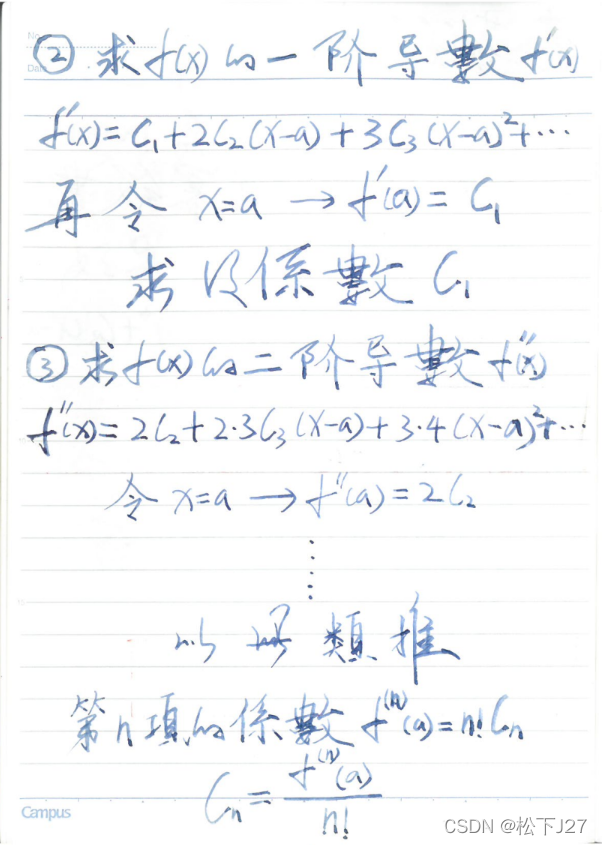 No.
Date
② 求f(x)的一阶导數f'(x)
f'(x)=C₁+2C₂(x-a)+3C₃(x-a)²+…
再令 x=a → f'(a)=C₁
求得係數 C₁
③ 求f(x)的二阶导數f''(x)
f''(x)=2C₂+2·3C₃(x-a)+3·4(x-a)²+…
令 x=a → f''(a)=2C₂
⋮
以此類推
第n項的係數 f⁽ⁿ⁾(a)=n!Cₙ
Cₙ=f⁽ⁿ⁾(a)/n!
Campus
CSDN @松下J27